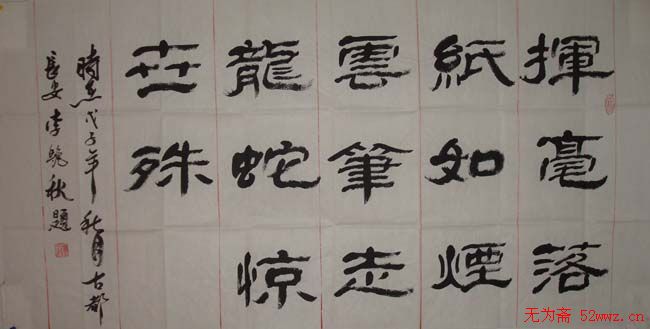 揮毫落
紙如煙
雲筆走
龍蛇惊
世殊
時在戊子年秋月古都
長安李晚秋題
无为斋 52wwz.cn